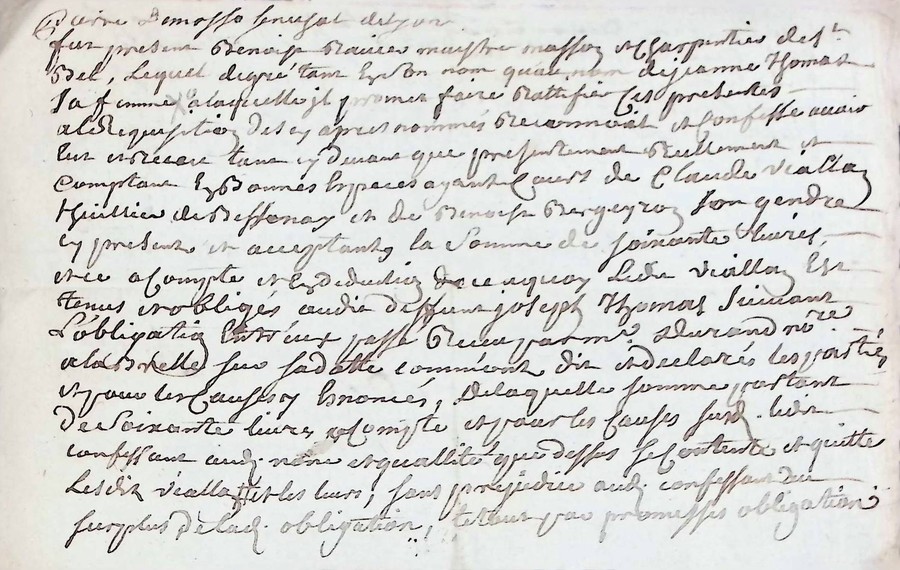 Pierre Demosso senechal de Lyon
fut present Benoist Raive maistre masson et Charpentier de St
Bel, Lequel degré tant En son nom qu'au nom de jeanne Thomas
Sa femme a laquelle il promet faire Rattifier Ces presentes
a la Requisition des cy apres nommés Reconnoit et Confesse avoir
Eut et Receu tant cy devant que presentement Reellement et
Comptant En Bonnes Especes ayant Court de Claude viallay
huillier de Bessenay et de Benoist Bergeyron Son gendre
cy present et acceptants la Somme de soixante livres,
et ce a Compte et En deduction de ce a quoy Ledit viallay Est
tenus et obligés audit deffunt joseph Thomas Suivant
L'obligation Entr'eux passé Receu par me. Durand nore.
a la Brelle sur sa datte comm'ent dit et declarés les parties
et pour les Causes y Enoncés, De laquelle somme partant
de Soixante livres a Compte et pour les Causes susd. ledit
confessant aud. nom et quallité que desses se Contente et quitte
Lesdits viallay et les leurs, sans prejudice aud. confessant du
surplus de lad. obligation, le tout par promesses obligation